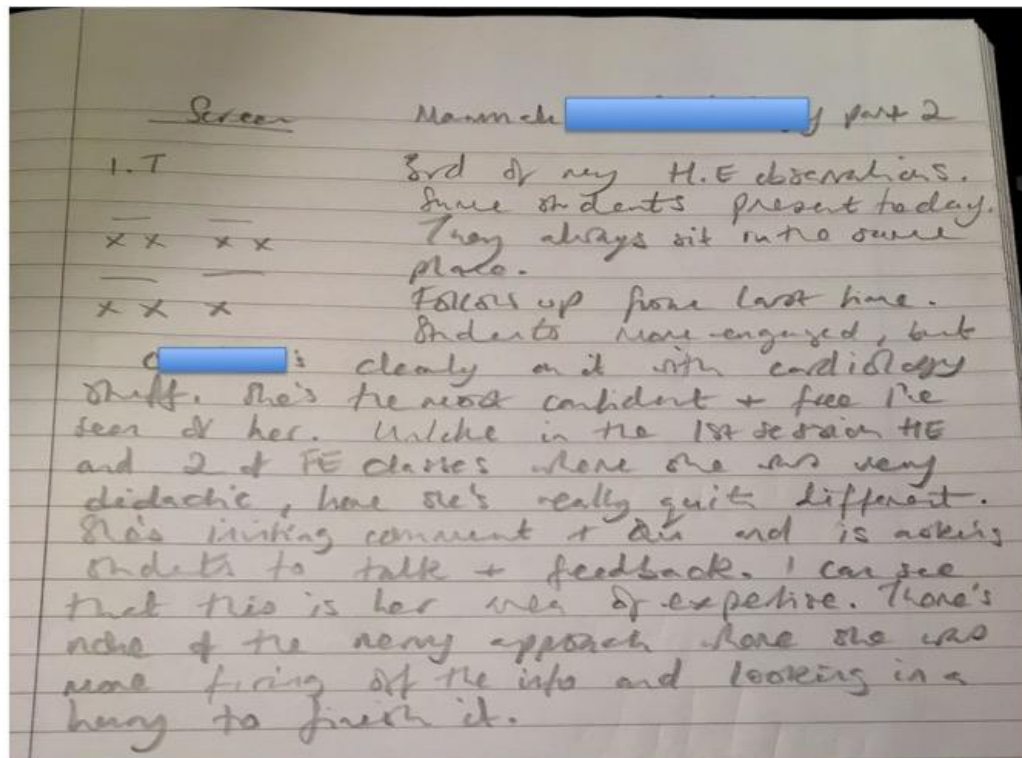 Screen
part 2
1. T
3rd of my H.E observations.
Same students present today.
x x x x
They always sit in the same
place.
x x x
Follows up from last time.
Students more engaged, but
clearly on it with cardiology
stuff. She's the most confident + free I've
seen of her. Unlike in the 1st session HE
and 2 of FE classes where she was very
didactic, here she's really quite different.
She's inviting comment + Qu and is asking
students to talk + feedback. I can see
that this is her area of expertise. There's
none of the approach where she was
more firing off the info and looking in a
hurry to finish it.